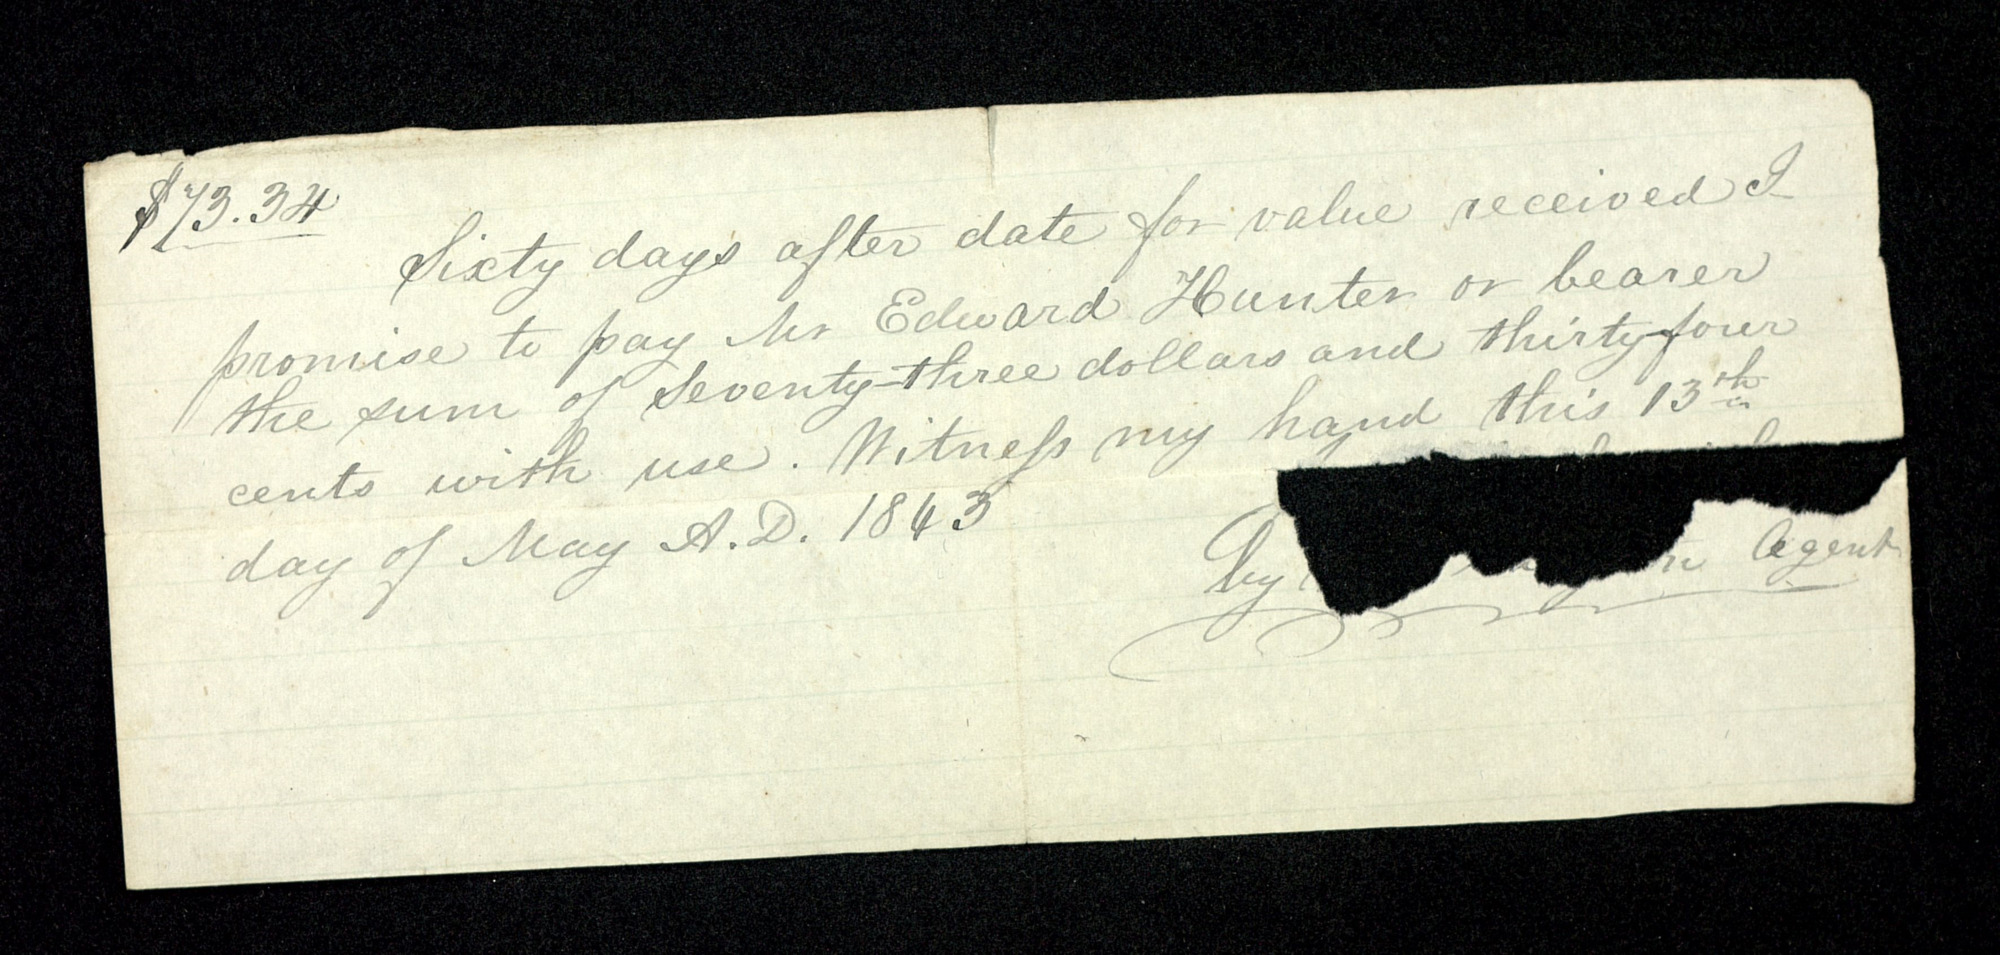 $73.34
Sixty days after date for value received I
promise to pay Mr Edward Hunter or bearer
the sum of Seventy-three dollars and thirty-four
cents with use. Witness my hand this 13th
day of May A.D. 1843
By Agent